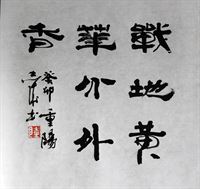 戰地黄
華分外
香
癸卯重陽